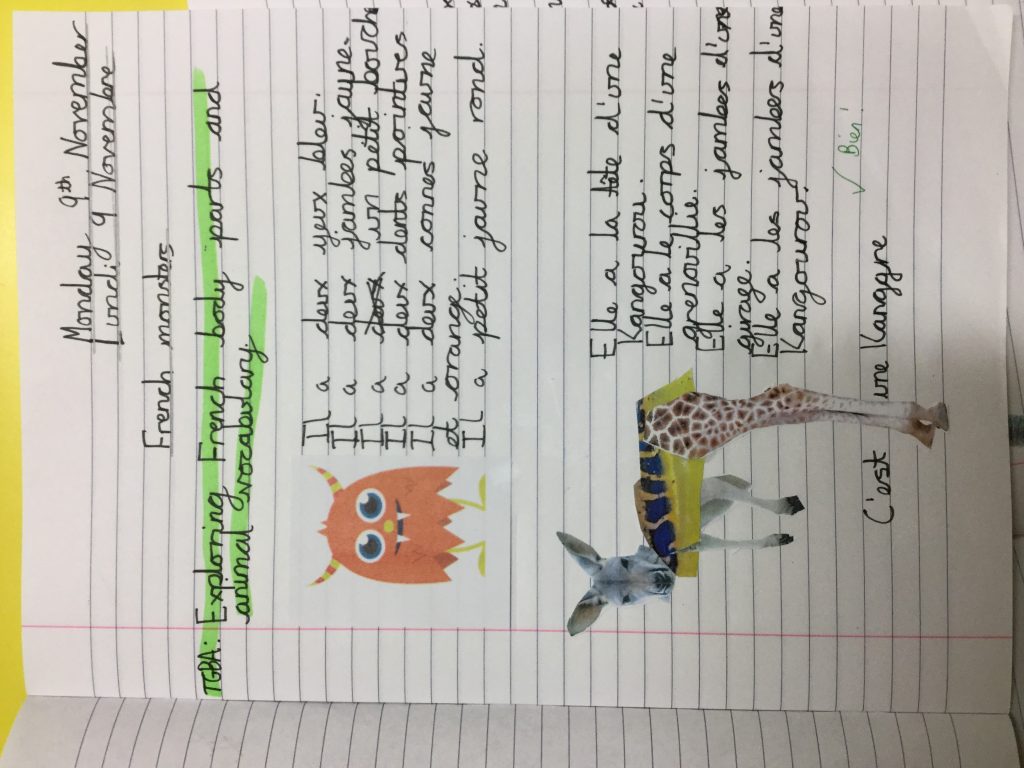 Monday 9th November
Lundi 9 Novembre
French monsters
TGBA: Exploring French body parts and
animal vocabulary.
Il a deux yeux bleu.
Il a deux jambes jaune.
Il a un petit bouche
Il a deux dents pointues
Il a deux cornes jaune
et orange.
Il a petit jaune rond.
Elle a la tête d'une
Kangourou.
Elle a le corps d'une
grenouille.
Elle a les jambes d'une
girafe.
Elle a les jambes d'une
Kangourou.
C'est une Kanggre
✓ Bien!